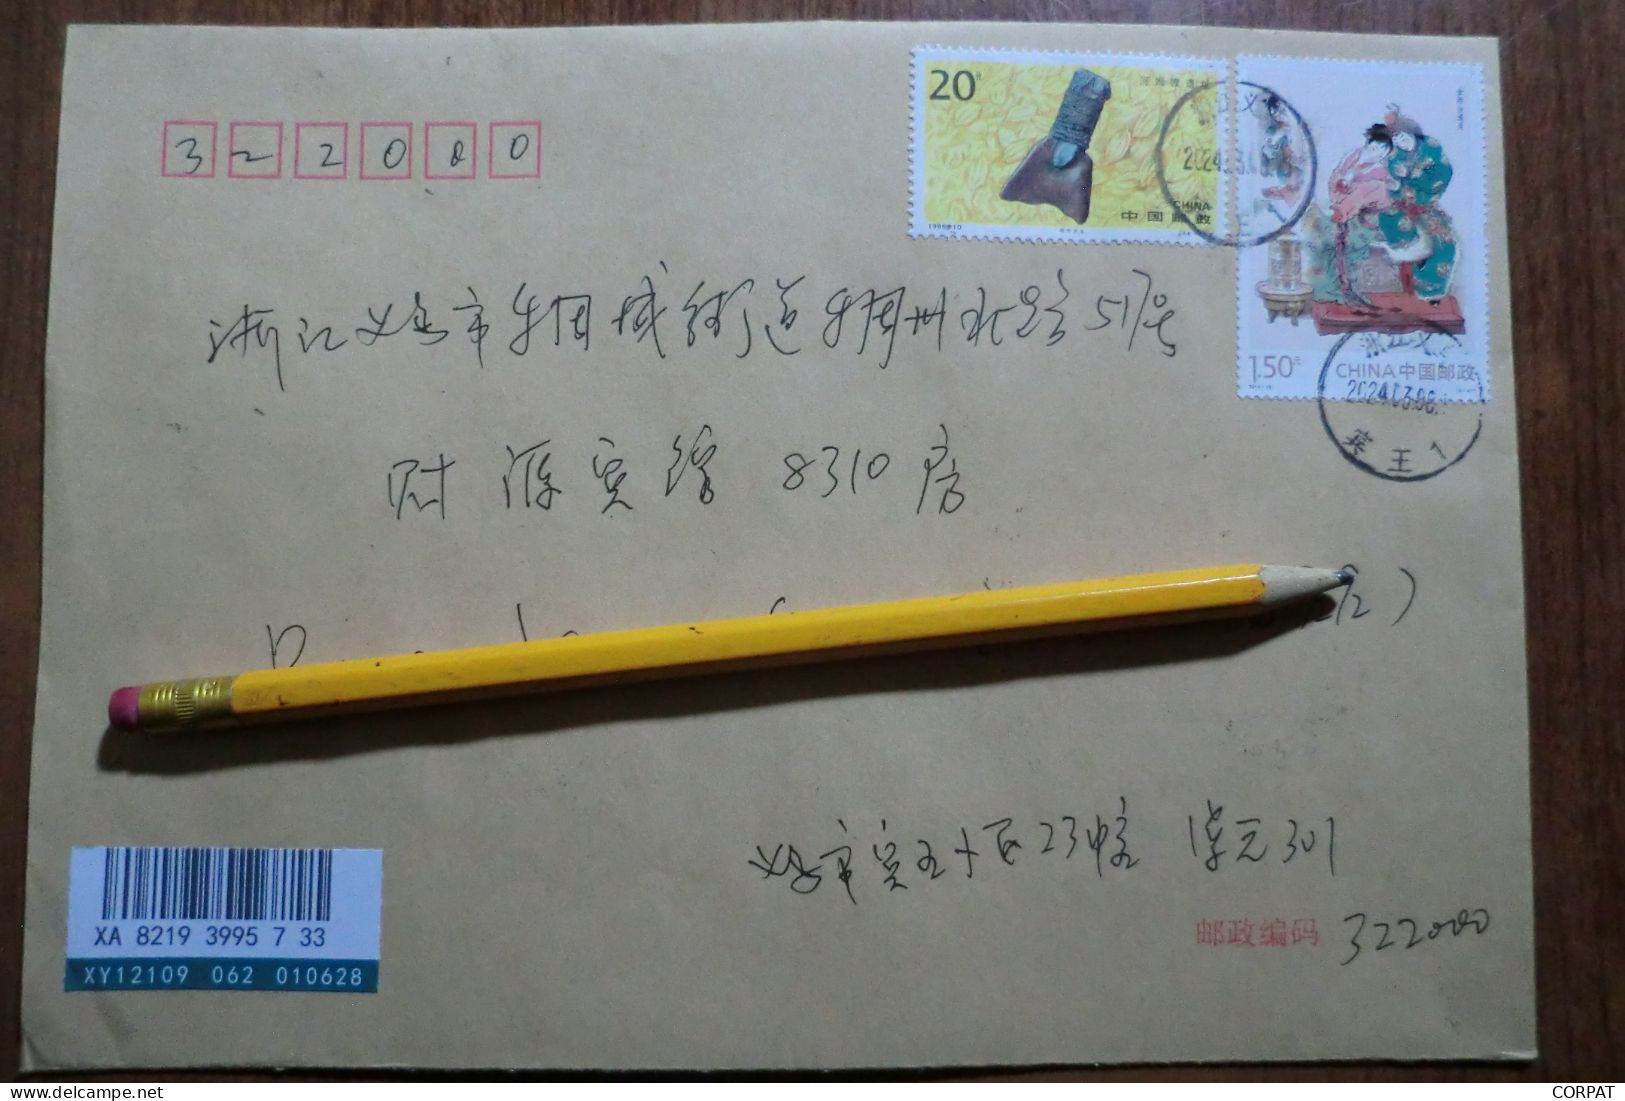 322000
20分
CHINA
中国邮政
1.50元
CHINA 中国邮政
2024.03.08
宾王1
浙江义乌市稠城街道稠州北路517号
财源宾馆 8310房
义乌市宾王小区23幢 单元301
邮政编码 322000
XA 8219 3995 7 33
XY12109 062 010628
CORPAT